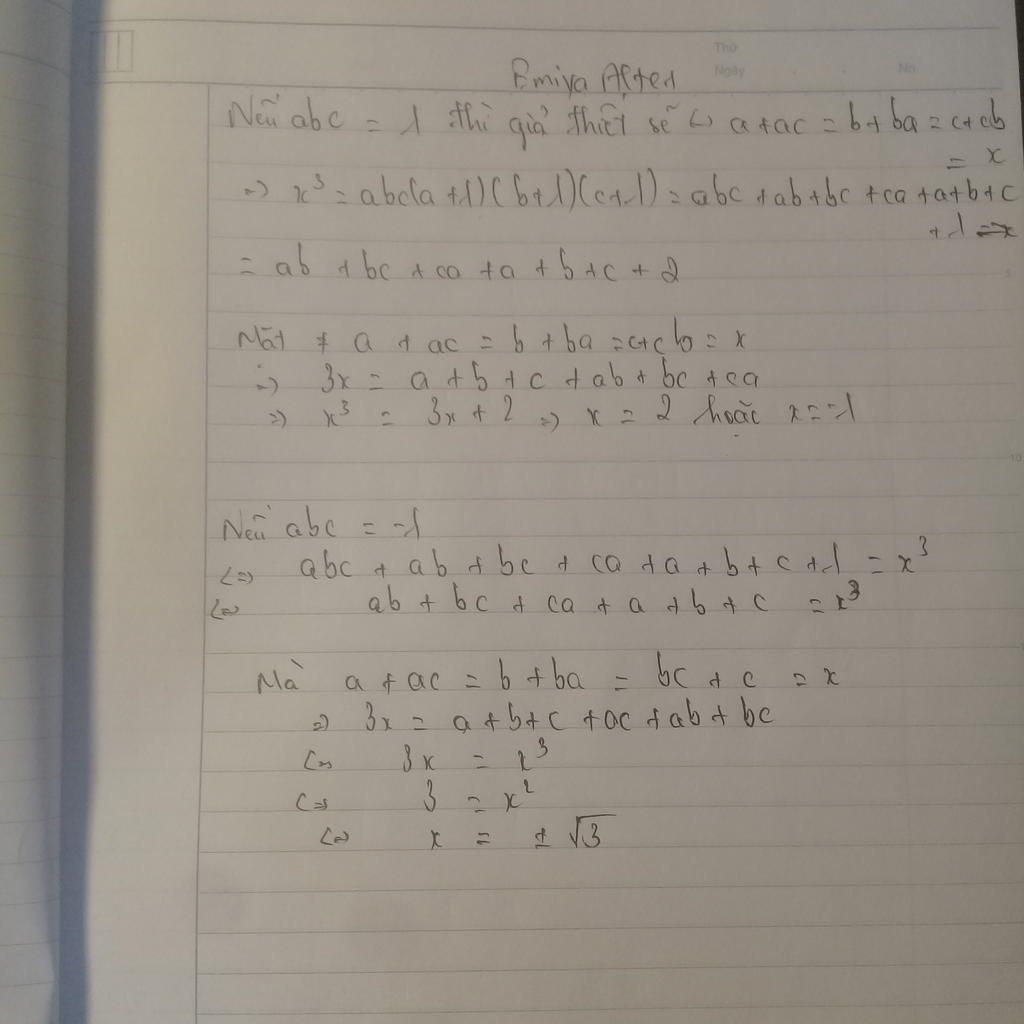 Thứ
Ngày
No.
Emiya After
Nếu abc = 1 thì giả thiết sẽ <=> a + ac = b + ba = c + cb
= x
=> x³ = abc(a+1)(b+1)(c+1) = abc + ab + bc + ca + a + b + c
+ 1
= ab + bc + ca + a + b + c + 2
Mặt ≠ a + ac = b + ba = c + cb = x
=> 3x = a + b + c + ab + bc + ca
=> x³ = 3x + 2 => x = 2 hoặc x = -1
10
Nếu abc = -1
<=> abc + ab + bc + ca + a + b + c + 1 = x³
<=> ab + bc + ca + a + b + c = x³
Mà a + ac = b + ba = bc + c = x
=> 3x = a + b + c + ac + ab + bc
<=> 3x = x³
<=> 3 = x²
<=> x = ± √3